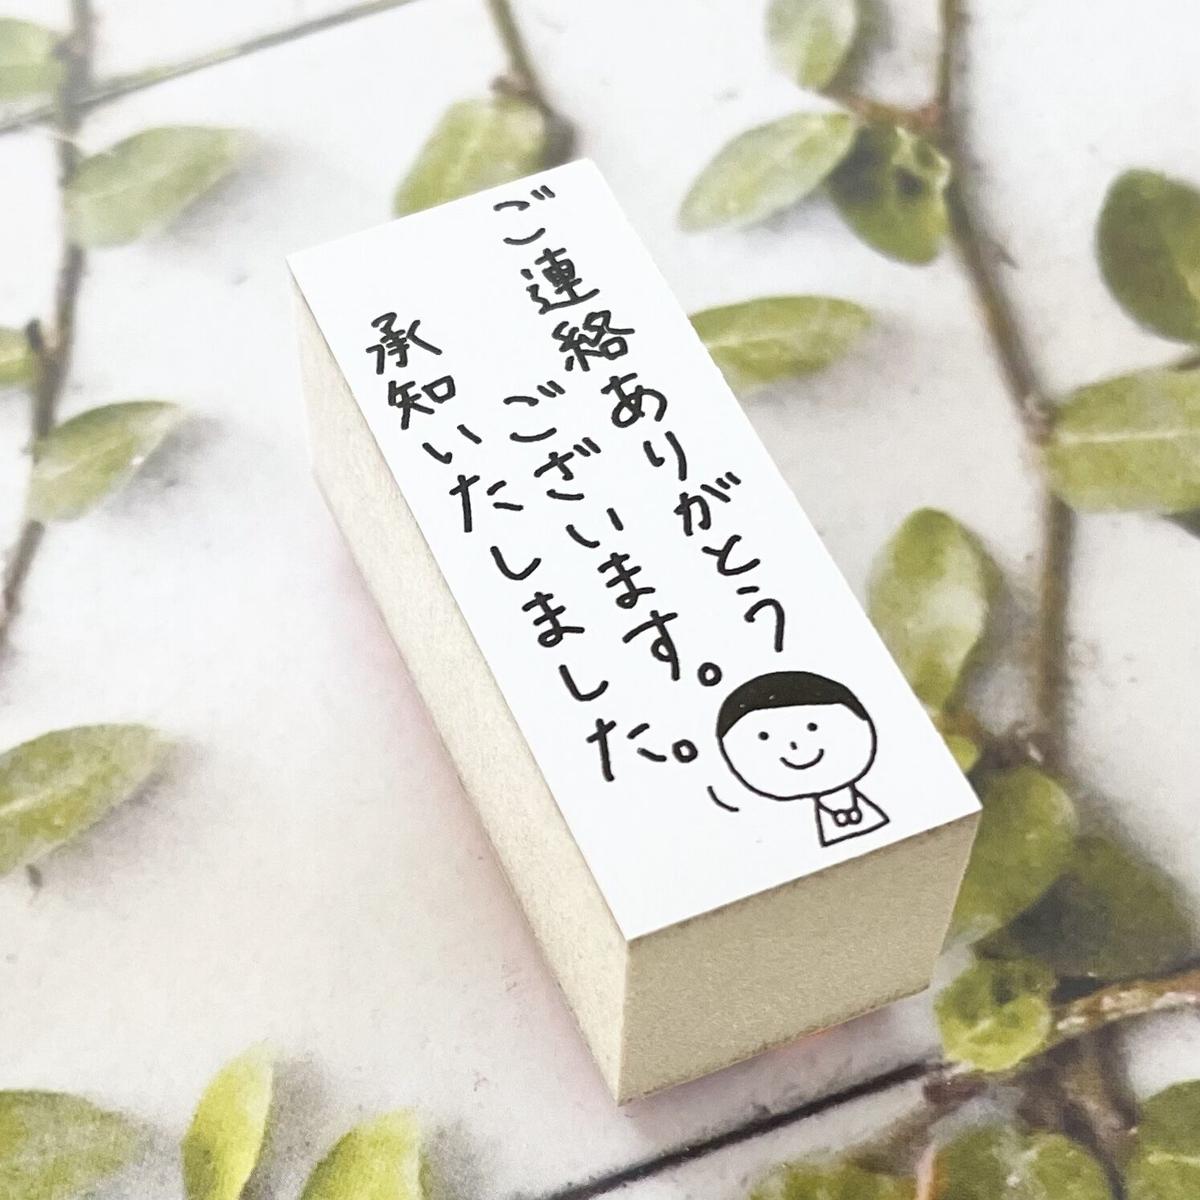 ご連絡ありがとう
ございます。
承知いたしました。